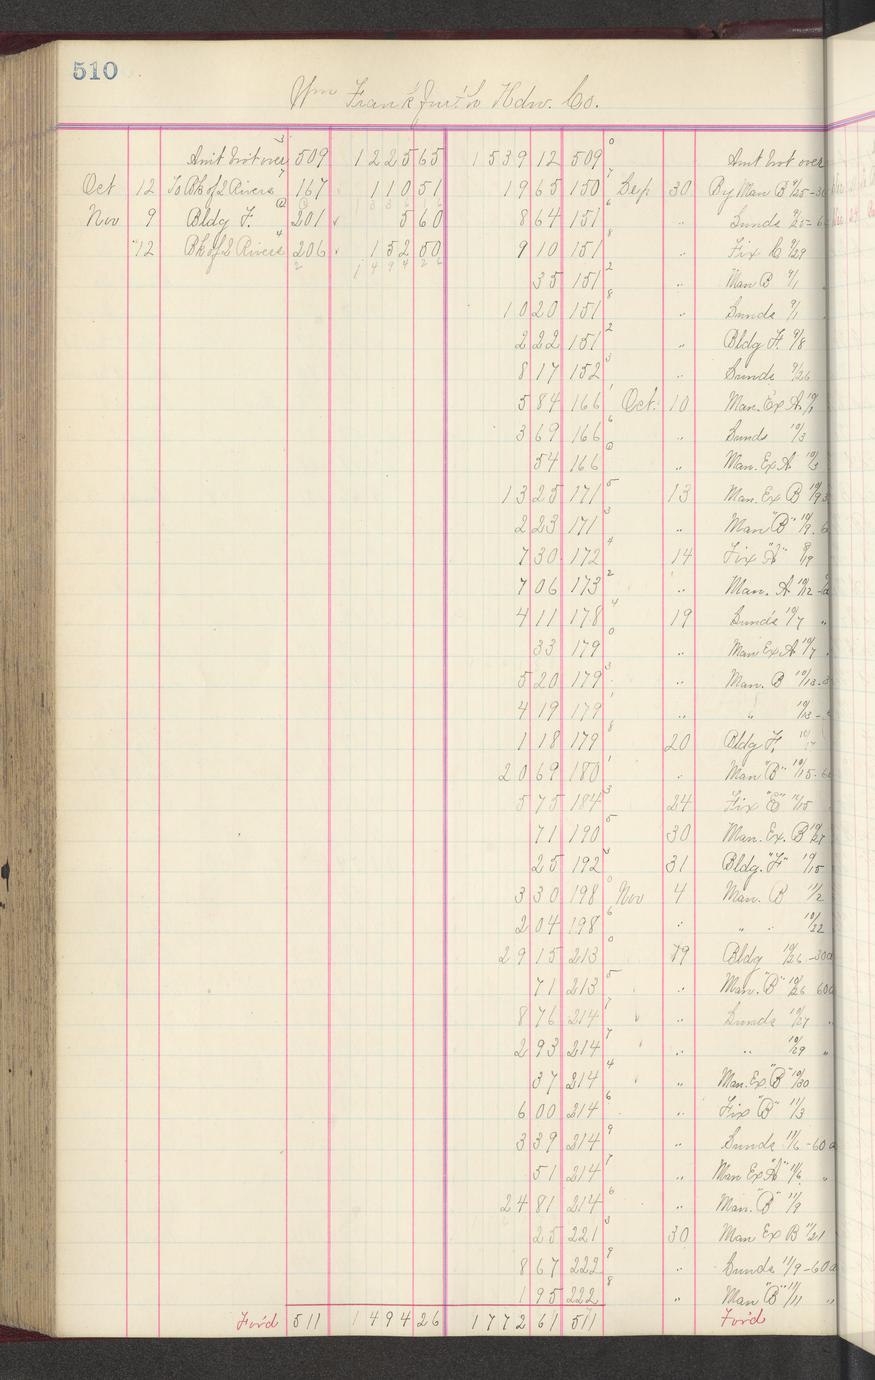 510
Wm Frankfurth Hdw. Co.
Amt brot over 509 1225 65 1539 12 509 Amt brot over
Oct 12 To Bk of 2 Rivers 167 110 51 19 65 150 Sep 30 By Man B 9/25-30
Nov 9 Bldg F. 201 5 60 8 64 151 " Sunds 9/25-60
"12 Bk of 2 Rivers 206 152 50 9 10 151 " Fix C 9/29
1494 26 35 151 " Man B 9/1
10 20 151 " Sunds 9/1
2 22 151 " Bldg F. 9/8
8 17 152 " Sunds 9/26
5 84 166 Oct. 10 Man. Ex A 10/1
3 69 166 " Sunds 10/3
54 166 " Man. Ex A 10/3
13 25 171 13 Man. Ex B 10/9
2 23 171 " Man "B" 10/9
7 30 172 14 Fix "A" 8/19
7 06 173 " Man. A 10/12
4 11 178 19 Sunds 10/7 "
33 179 " Man Ex A 10/7
5 20 179 " Man. B 10/13
4 19 179 " " 10/13
1 18 179 20 Bldg F. 10/17
20 69 180 " Man "B" 10/15-60
5 75 184 24 Fix "E"
71 190 30 Man. Ex. B 10/27
25 192 31 Bldg. "F" 10/15
3 30 198 Nov 4 Man. B 11/2
2 04 198 " " " 10/22
29 15 213 19 Bldg 10/26-30d
71 213 " Man. "B" 10/26 60d
8 76 214 " Sunds 10/27 "
2 93 214 " " 10/29 "
37 214 " Man. Ex. "B" 10/30
6 00 214 " Fix "B" 11/3
3 39 214 " Sunds 11/6-60d
51 214 " Man Ex "A" 11/6 "
24 81 214 " Man. "B" 11/9
25 221 30 Man Ex B 11/21
8 67 222 " Sunds 11/9-60d
1 95 222 " Man "B" 11/11 "
For'd 511 1494 26 1772 61 511 For'd